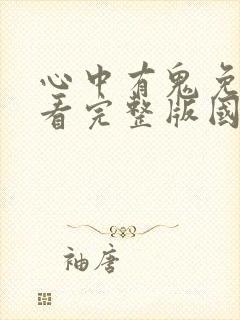 心中有鬼免
看完整版國
袖唐